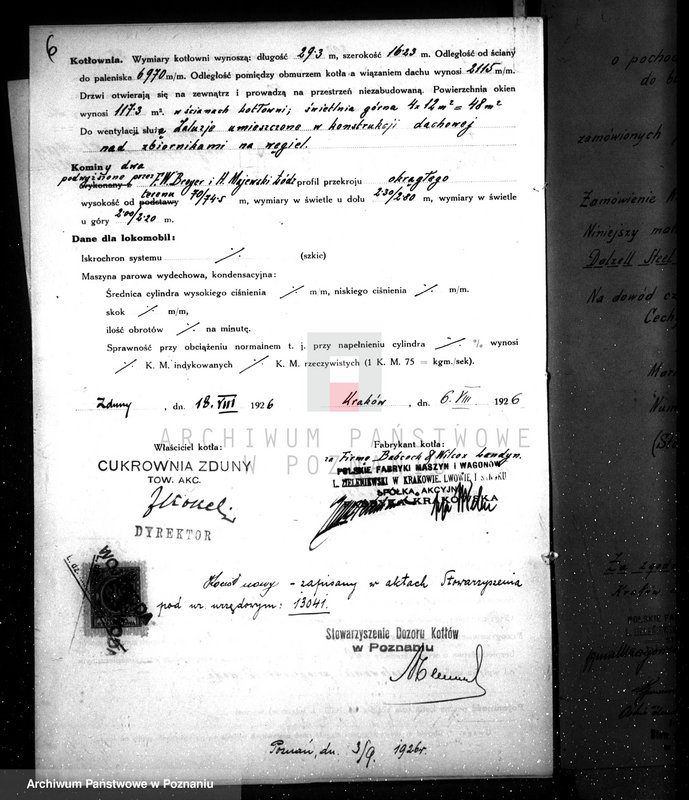 6
Kotłownia. Wymiary kotłowni wynoszą: długość 29·3 m, szerokość 16·23 m. Odległość od ściany
do paleniska 6970 m/m. Odległość pomiędzy obmurzem kotła a wiązaniem dachu wynosi 2115 m/m.
Drzwi otwierają się na zewnątrz i prowadzą na przestrzeń niezabudowaną. Powierzchnia okien
wynosi 117·3 m². w ścianach kotłowni; świetlnia górna 4 x 12 m² = 48 m²
Do wentylacji służą żaluzje umieszczone w konstrukcji dachowej
nad zbiornikami na węgiel.
Kominy dwa
podwyższone przez
Wykonany b F. W. Breyer i H. Majewski Łódź profil przekroju okrągłego
terenu
wysokość od podstawy 70/74·5 m, wymiary w świetle u dołu 2·30/2·80 m, wymiary w świetle
u góry 2·00/2·20 m.
Dane dla lokomobil:
Iskrochron systemu ·/· (szkic)
Maszyna parowa wydechowa, kondensacyjna:
Średnica cylindra wysokiego ciśnienia ·/· m/m, niskiego ciśnienia ·/· m/m.
skok ·/· m/m,
ilość obrotów ·/· na minutę.
Sprawność przy obciążeniu normalnem t. j. przy napełnieniu cylindra ·/· % wynosi
·/· K. M. indykowanych ·/· K. M. rzeczywistych (1 K. M. 75 = kgm./sek).
Zduny, dn. 18. VIII 1926
Kraków, dn. 6. VIII 1926
ARCHIWUM PAŃSTWOWE
W POZNANIU
Właściciel kotła:
CUKROWNIA ZDUNY
TOW. AKC.
DYREKTOR
Fabrykant kotła:
za Firmę Babcock & Wilcox Londyn.
POLSKIE FABRYKI MASZYN I WAGONÓW
L. ZIELENIEWSKI W KRAKOWIE, LWOWIE I SANOKU
SPÓŁKA AKCYJNA
FABRYKA KRAKOWSKA
Kocioł nowy – zapisany w aktach Stowarzyszenia
pod nr. urzędowym: 13041.
Stowarzyszenie Dozoru Kotłów
w Poznaniu
Poznań, dn. 3/9. 1926 r.
o pocho
do b
zamówionych
Zamówienie N
Niniejszy mat
Dalzell Steel
Na dowód cz
Cech
Mar
Num
(St
Za zgod
Kraków d
POLSKIE FA
Archiwum Państwowe w Poznaniu